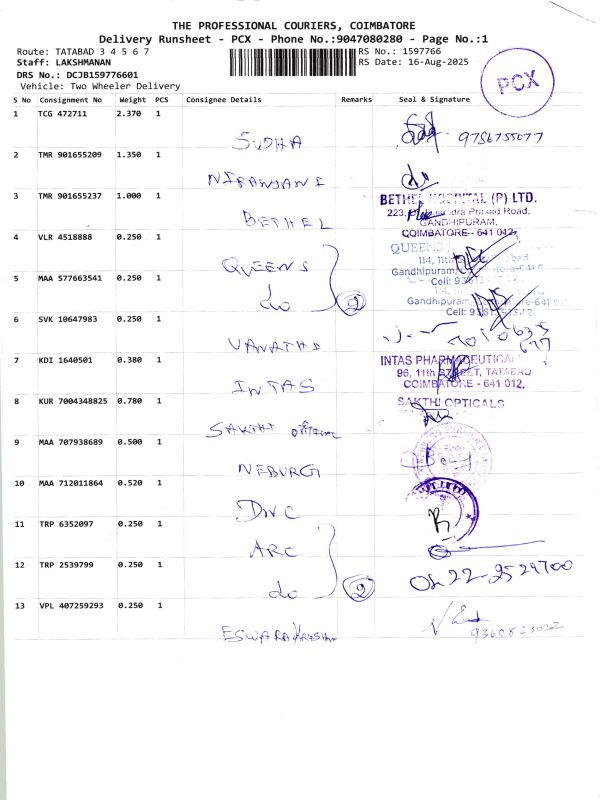 THE PROFESSIONAL COURIERS, COIMBATORE
Delivery Runsheet - PCX - Phone No.:9047080280 - Page No.:1
Route: TATABAD 3 4 5 6 7 RS No.: 1597766
Staff: LAKSHMANAN RS Date: 16-Aug-2025
DRS No.: DCJB159776601
Vehicle: Two Wheeler Delivery
PCX
S No Consignment No Weight PCS Consignee Details Remarks Seal & Signature
1 TCG 472711 2.370 1
SUDHA
2 TMR 901655209 1.350 1
NIRANJANI
3 TMR 901655237 1.000 1
BETHEL
BETHEL HOSPITAL (P) LTD.
223, Prasad Road,
GANDHIPURAM,
COIMBATORE - 641 012.
4 VLR 4518888 0.250 1
QUEENS
QUEENS
114, 11th
Gandhipuram,
Cell:
5 MAA 577663541 0.250 1
do 2
Gandhipuram,
Cell:
6 SVK 10647983 0.250 1
VANATHI
7 KDI 1640501 0.380 1
INTAS
INTAS PHARMACEUTICAL
96, 11th STREET, TATABAD
COIMBATORE - 641 012.
8 KUR 7004348825 0.780 1
SAKTHI
SAKTHI OPTICALS
9 MAA 707938689 0.500 1
NEBURG
10 MAA 712011864 0.520 1
DNC
11 TRP 6352097 0.250 1
ARC
12 TRP 2539799 0.250 1
do 2
0422-2529700
13 VPL 407259293 0.250 1